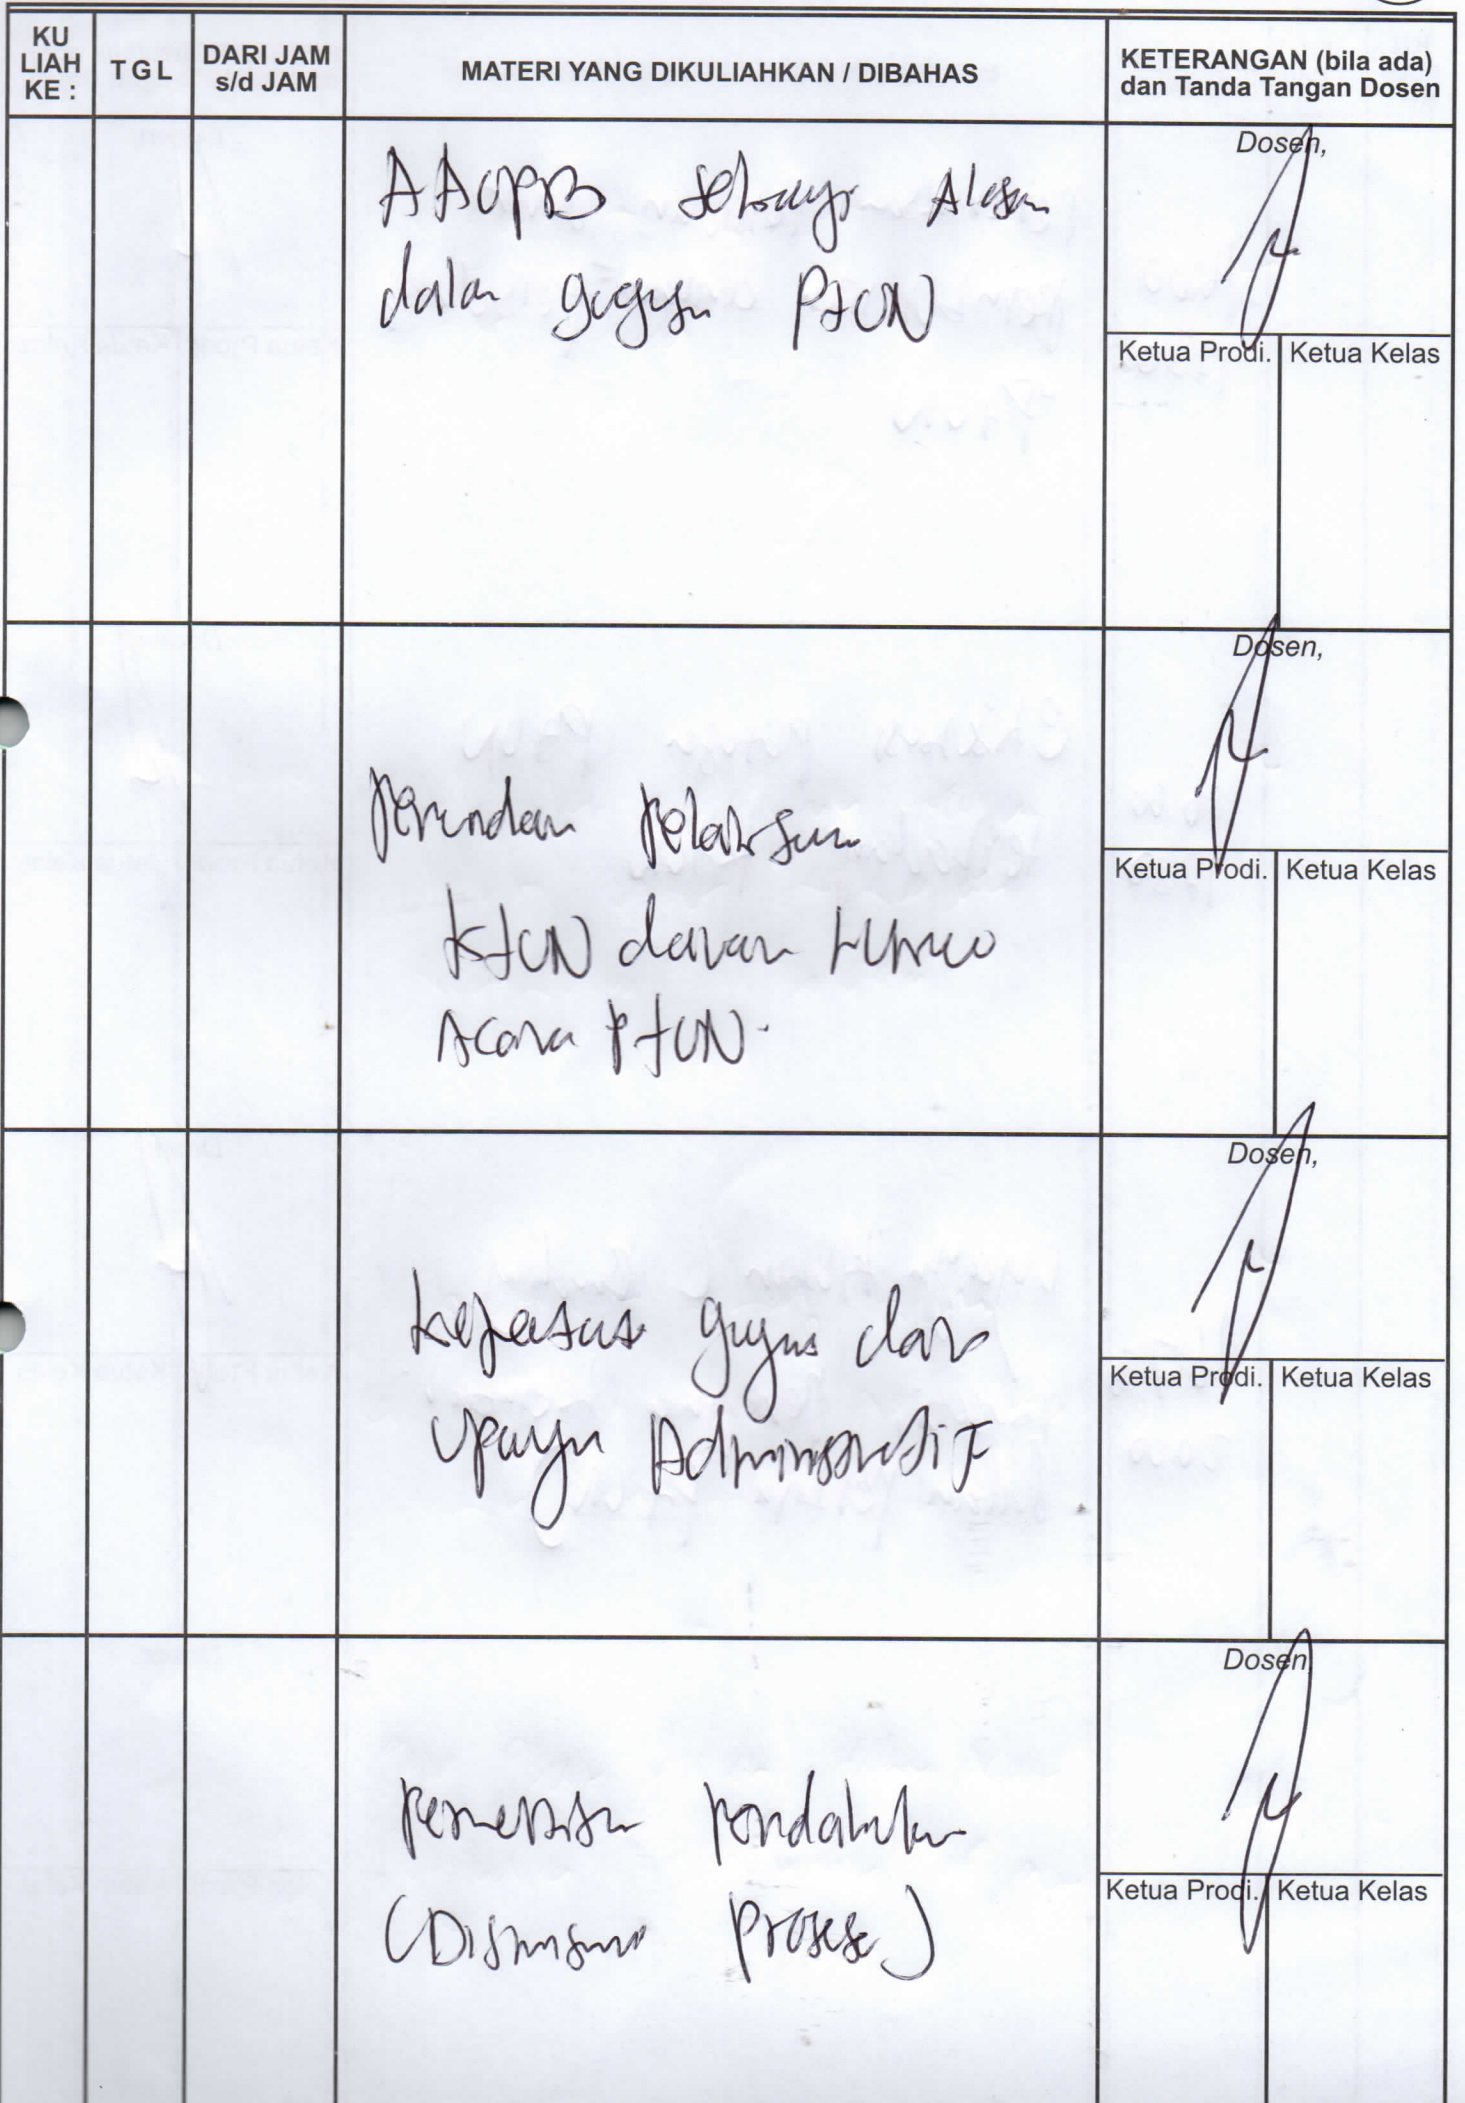 KU
LIAH
KE :
TGL
DARI JAM
s/d JAM
MATERI YANG DIKULIAHKAN / DIBAHAS
KETERANGAN (bila ada)
dan Tanda Tangan Dosen
AAUPB sebagai Alasan
dalam gugatan PTUN
Dosen,
Ketua Prodi. Ketua Kelas
Penundaan Pelaksanaan
KTUN dalam Hukum
Acara PTUN.
Dosen,
Ketua Prodi. Ketua Kelas
gugatan dan
Upaya Administratif
Dosen,
Ketua Prodi. Ketua Kelas
Pemeriksaan Pendahuluan
(Dismissal Proses)
Dosen
Ketua Prodi. Ketua Kelas